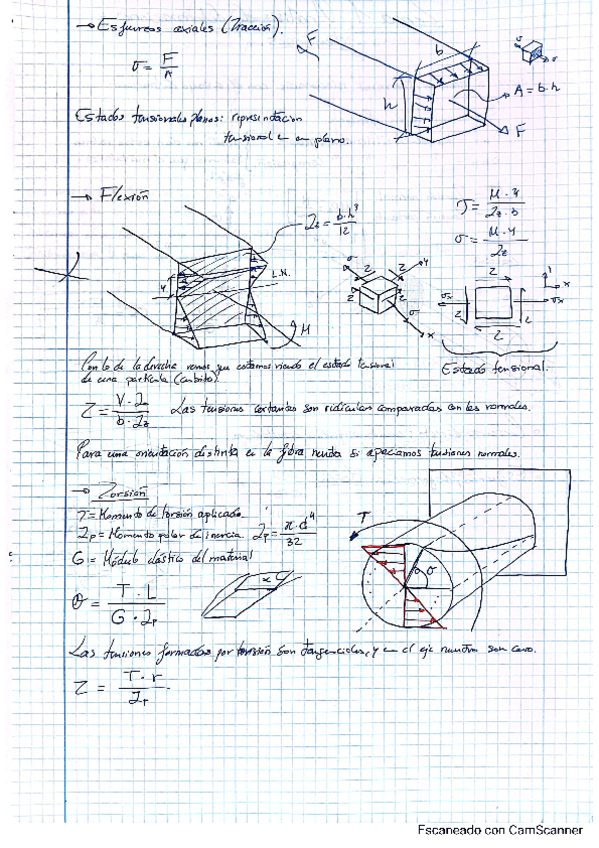 → Esfuerzos axiales (Tracción).
σ = F/A
F
b
h
A = b·h
F
Estados tensionales planos: representación
tensional en un plano.
→ Flexión
Iz = b·h³/12
L.N.
y
M
σ = M·y/Iz
x
y
σx
σx
Estado tensional.
Con lo de la derecha vemos que estamos viendo el estado tensional
de una partícula (cubito).
Las tensiones cortantes son ridículas comparadas con las normales.
Para una orientación distinta en la fibra neutra si apreciamos tensiones normales.
→ Torsión
T = Momento de torsión aplicado.
Jp = Momento polar de inercia. Jp = π·d⁴/32
G = Módulo elástico del material
θ = T·L/G·Jp
T
θ
Las tensiones formadas por torsión son tangenciales, y en el eje neutro son cero.
τ = T·r/Jp
Escaneado con CamScanner